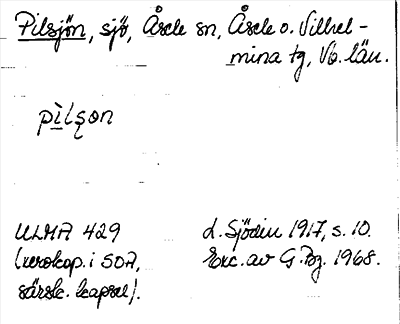 Pilsjön, sjö, Åsele sn, Åsele o. Vilhel-
mina tg, Vb. län.
pìlʂon
ULMA 429
(xerokop. i SOA,
särsk. kapsel).
L. Sjödin 1917, s. 10.
Exc. av G. Bg. 1968.